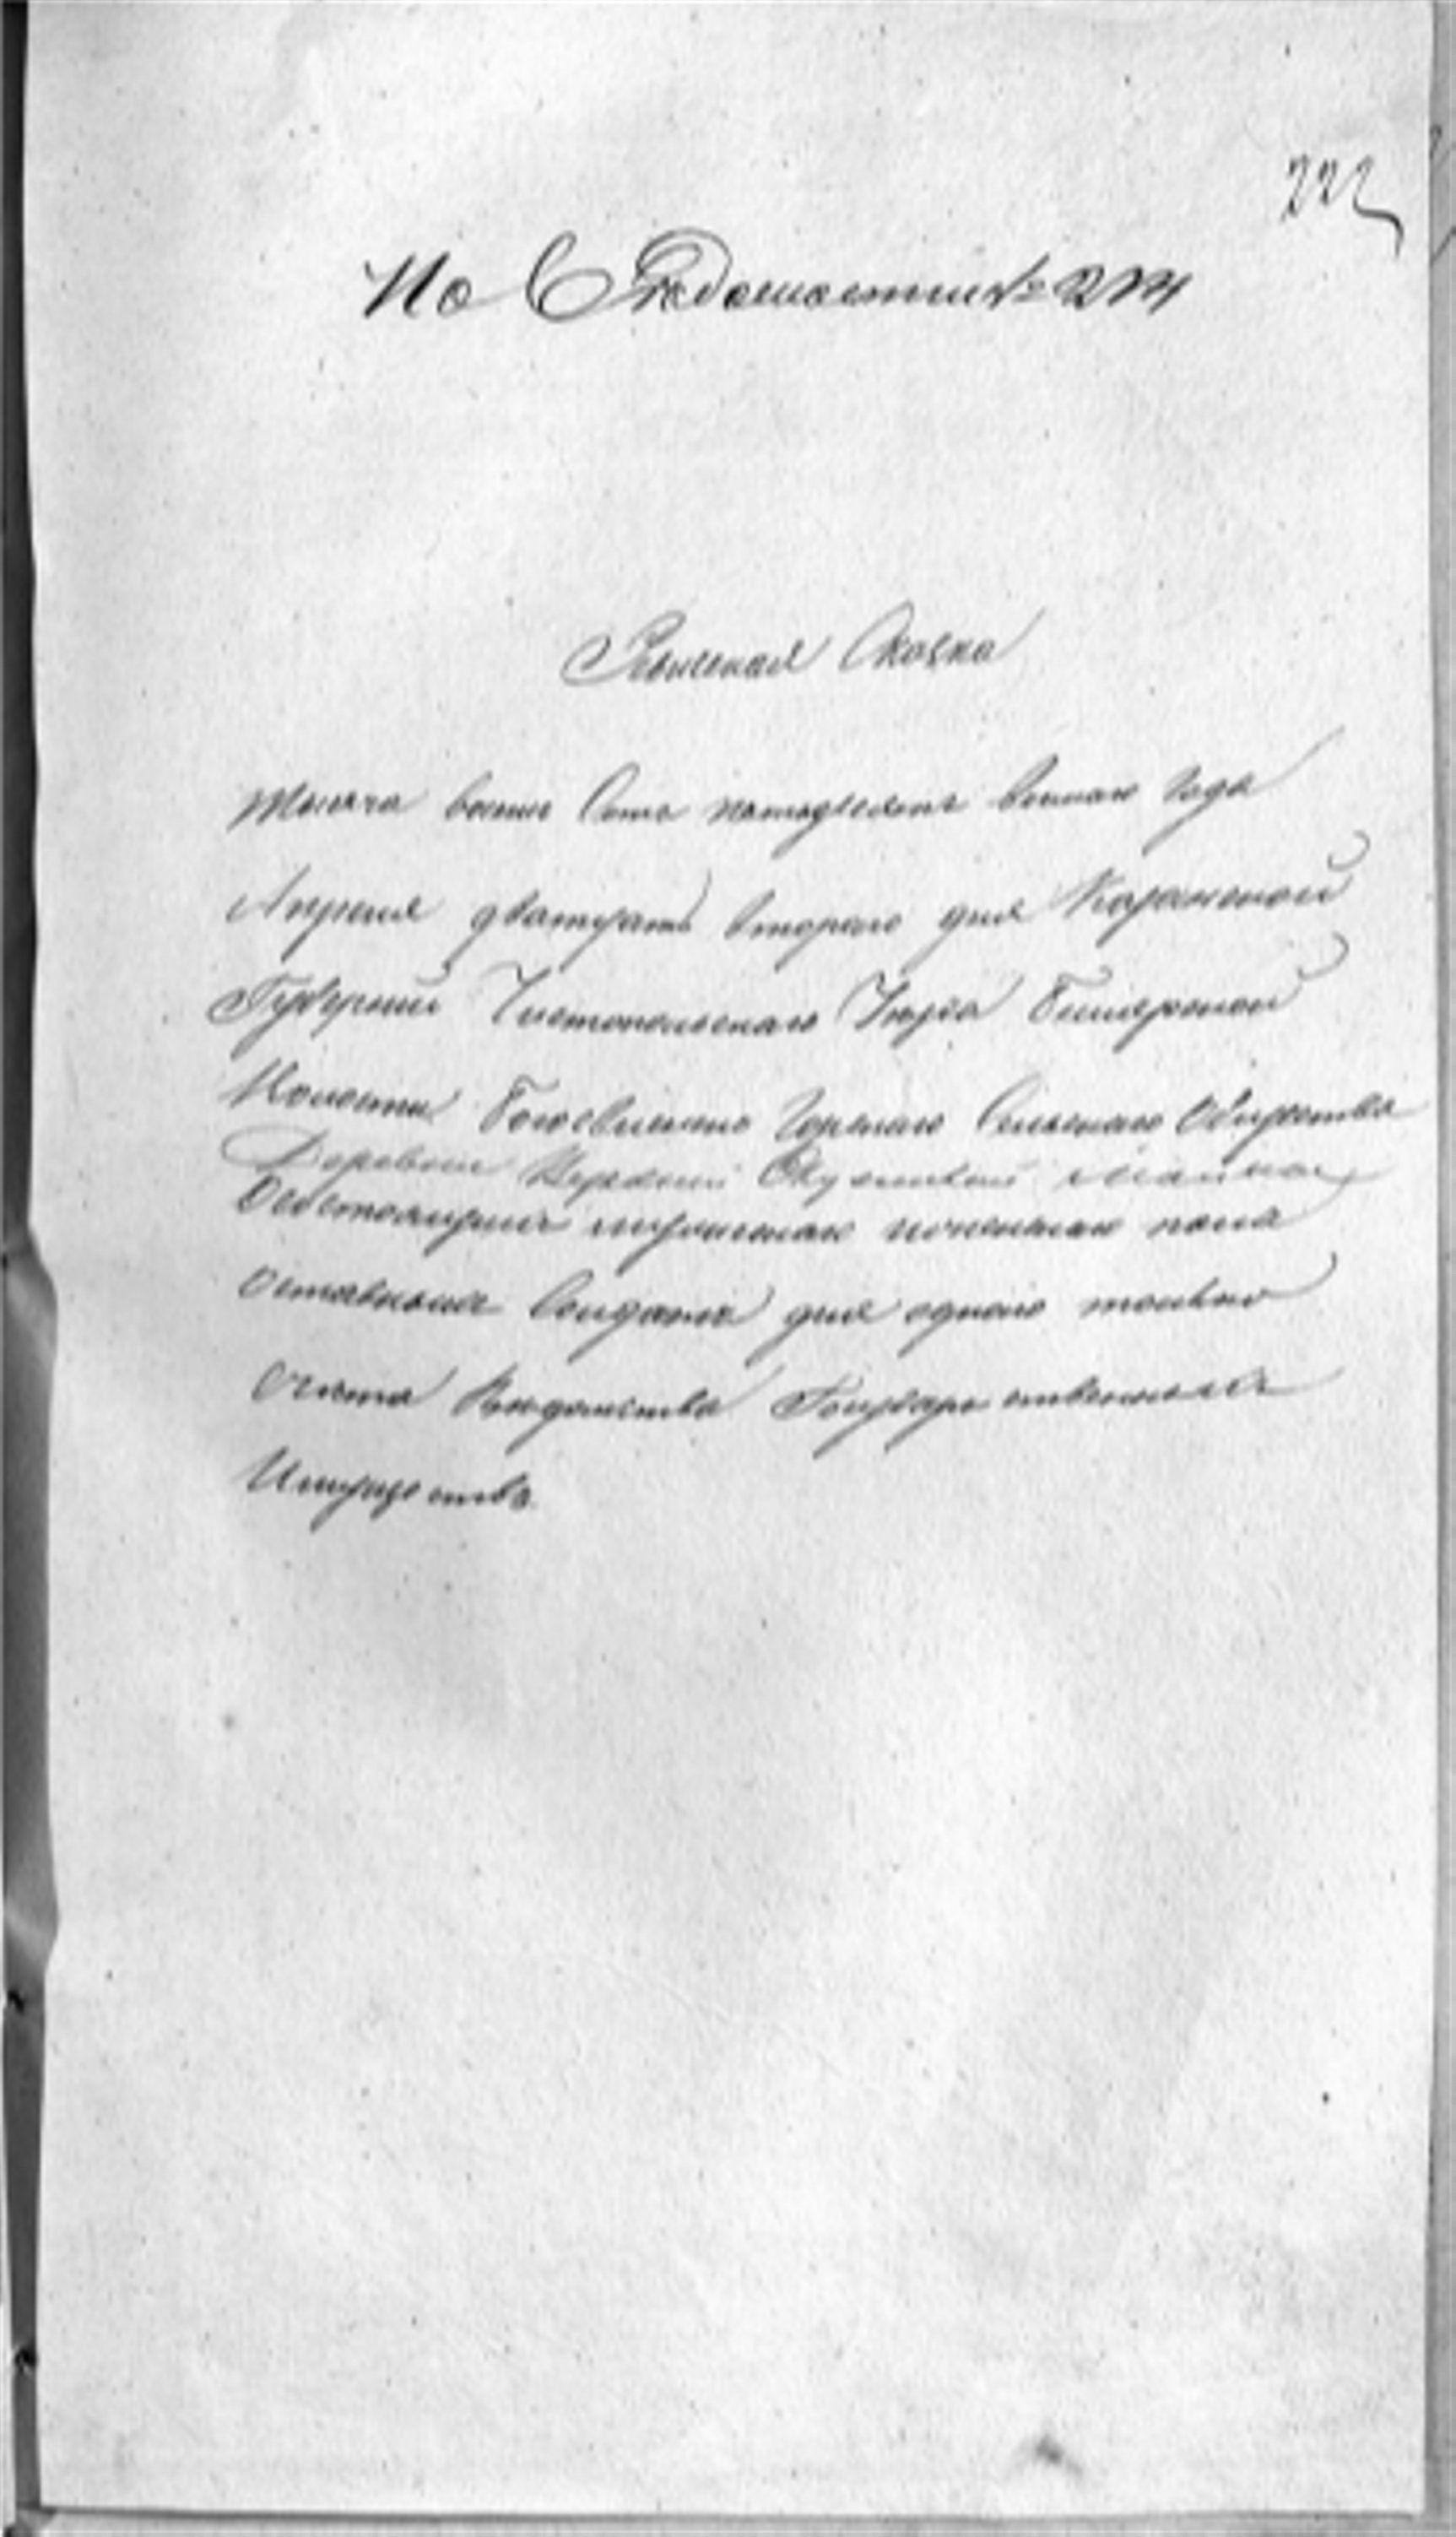 222
По Ведомости № 224
Ревизская Сказка
Тысяча восемь Сотъ пятьдесятъ восьмаго Года
Апреля дватцать втораго дня Казанской
Губернии Чистопольскаго Уезда Билярской
Волости Горскаго Сельскаго Общества
Деревни
о состоящихъ мужескаго и женскаго пола
отставныхъ Солдатъ для однаго только
Счета Ведомства Государственныхъ
Имуществъ.